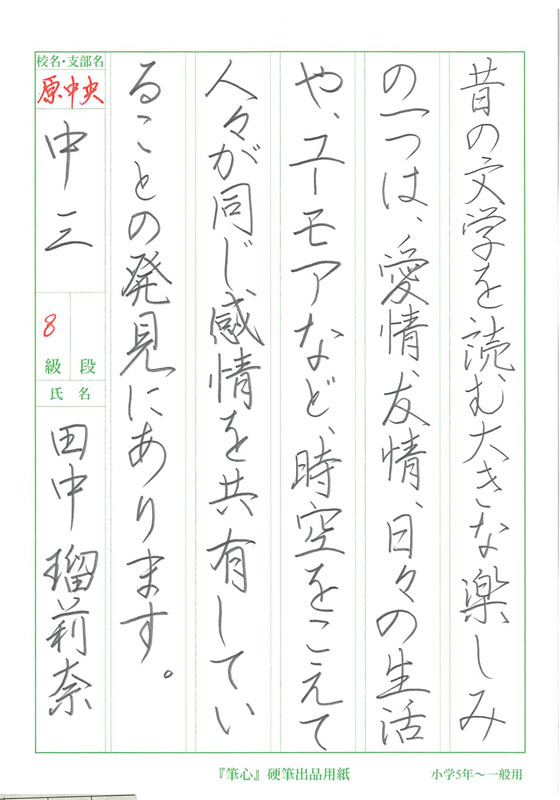 昔の文学を読む大きな楽しみ
の一つは、愛情、友情、日々の生活
や、ユーモアなど、時空をこえて
人々が同じ感情を共有してい
ることの発見にあります。
校名・支部名
原中央
中三
8
級 段
氏 名
田中瑠莉奈
『筆心』硬筆出品用紙
小学5年〜一般用